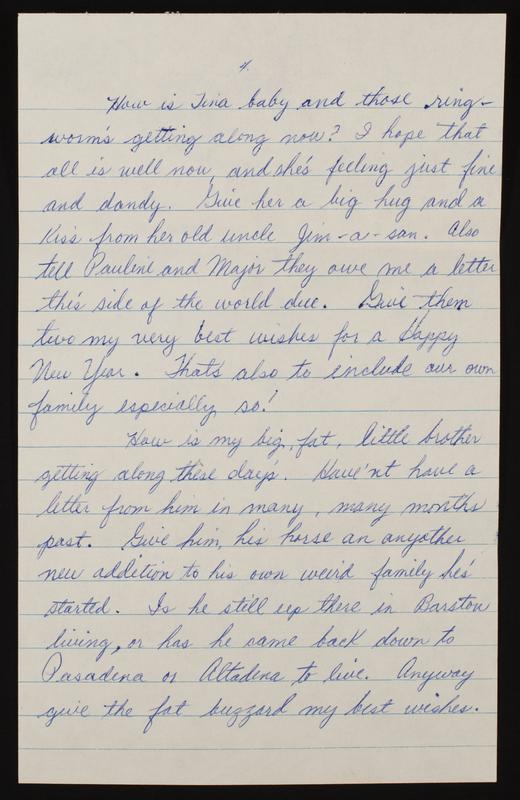 4.
How is Tina baby and those ring-
worm's getting along now? I hope that
all is well now, and she's feeling just fine
and dandy. Give her a big hug and a
Kiss from her old uncle Jim-a-san. Also
tell Pauline and Major they owe me a letter
this side of the world due. Give them
two my very best wishes for a Happy
New Year. That's also to include our own
family especially so!
How is my big, fat, little brother
getting along these day's. Have'nt have a
letter from him in many, many months
past. Give him, his horse an anyother
new addition to his own weird family he's
started. Is he still up there in Barstow
living, or has he came back down to
Pasadena or Altadena to live. Anyway
give the fat buzzard my best wishes.